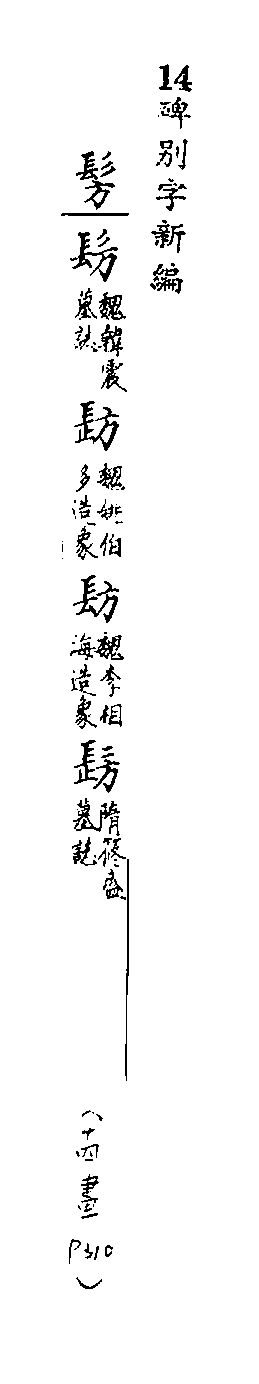 14碑别字新編
髣
髣
魏韓震
墓誌
魏姚伯
多造象
魏李相
海造象
髣
隋
墓誌
(十四畫P310)